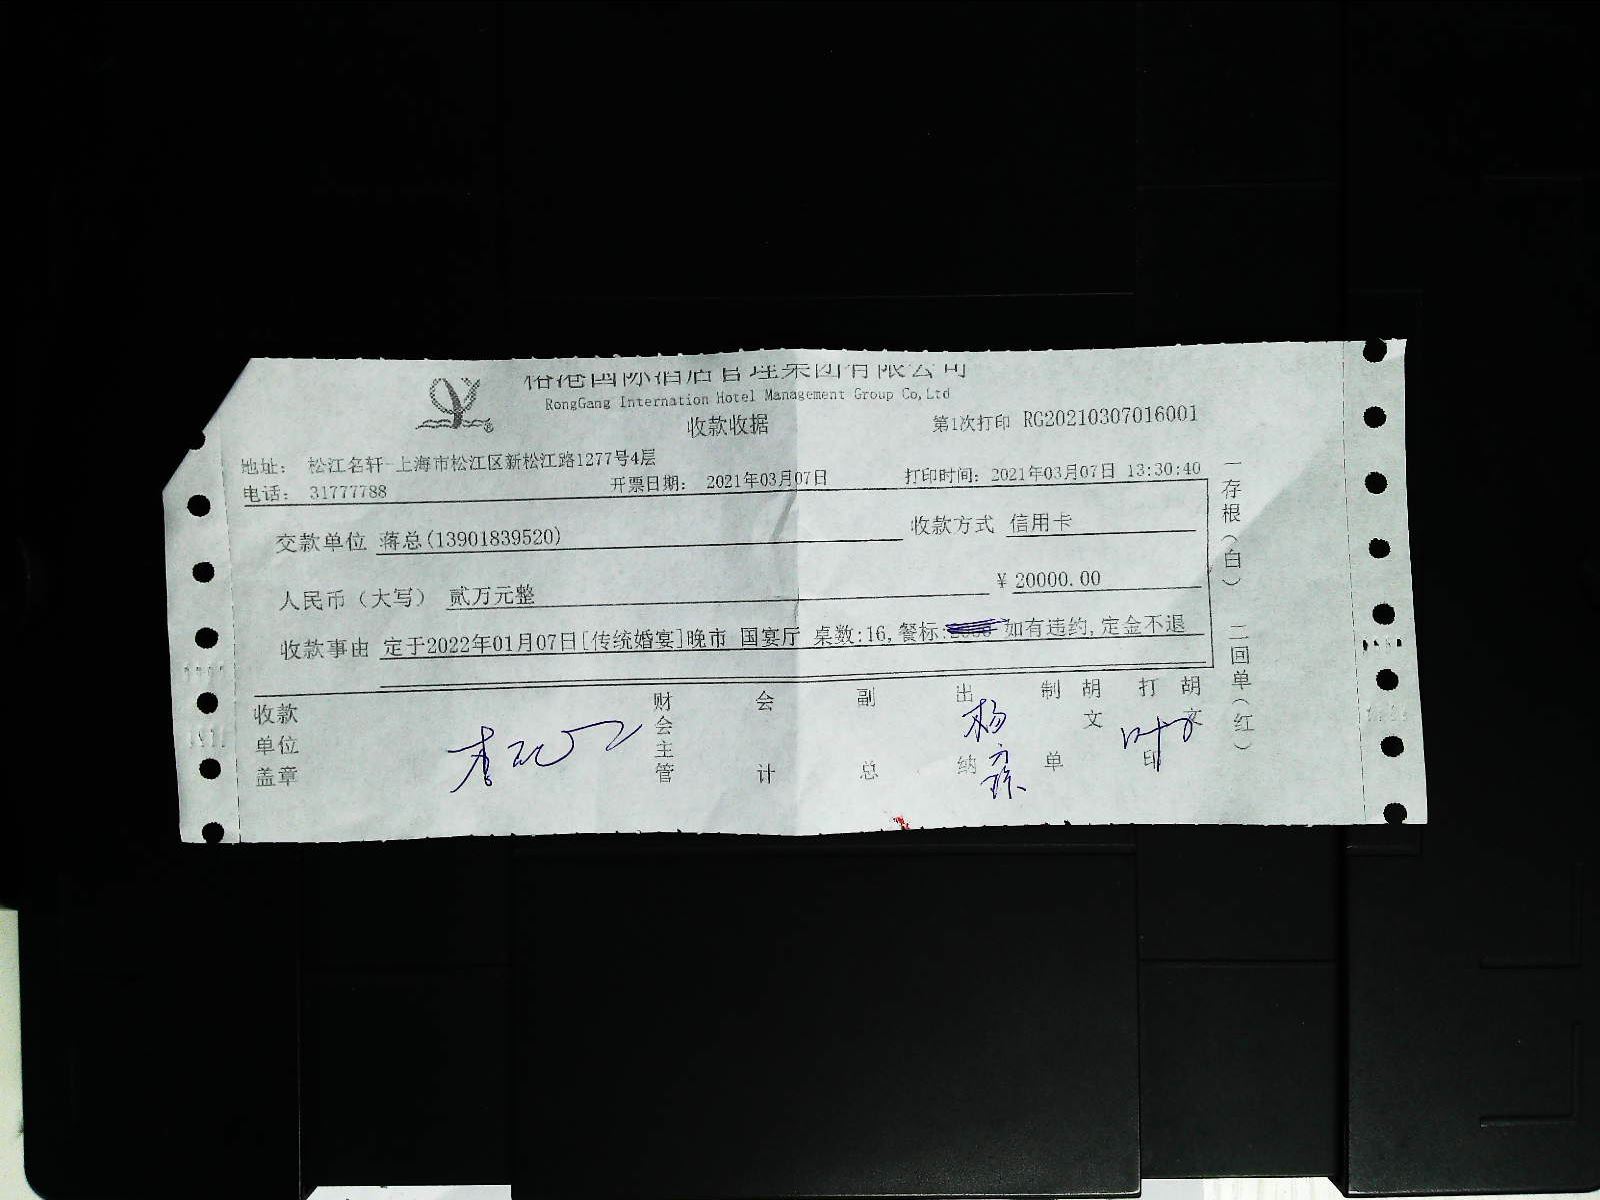 国际酒店管理集团有限公司
RongGang Internation Hotel Management Group Co,Ltd
收款收据
第1次打印 RG20210307016001
地址： 松江名轩-上海市松江区新松江路1277号4层
电话： 31777788
开票日期： 2021年03月07日
打印时间： 2021年03月07日 13:30:40
交款单位 蒋总(13901839520)
收款方式 信用卡
人民币（大写） 贰万元整
¥ 20000.00
收款事由 定于2022年01月07日[传统婚宴]晚市 国宴厅 桌数:16,餐标: 如有违约,定金不退
收款单位盖章
财会主管
会计
副总
出纳
杨
制单
胡文
打印
胡文
一存根（白） 二回单（红）